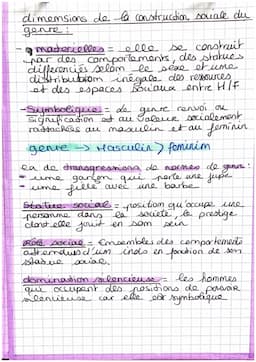 dimensions de la construction sociale du
genre :
matérielles = elle se construit
par des comportements, des statues
différenciés selon le sexe et une
distribution inégale des ressources
et des espaces sociaux entre H/F
Symbolique = de genre renvoi
signification et au valeurs socialement
rattachées au masculin et au féminin
genre → Masculin > féminin
ex de transgressions de normes de genre :
- une garçon qui porte une jupe
- une fille avec une barbe
Statue social = position qu'occupe une
personne dans la société, le prestige
dont elle jouit en son sein
Role social = Ensembles des comportements
attendus d'un indv en fonction de son
statue social
domination silencieuse = les hommes
qui occupent des positions de pouvoir
silencieuse car elle est symbolique